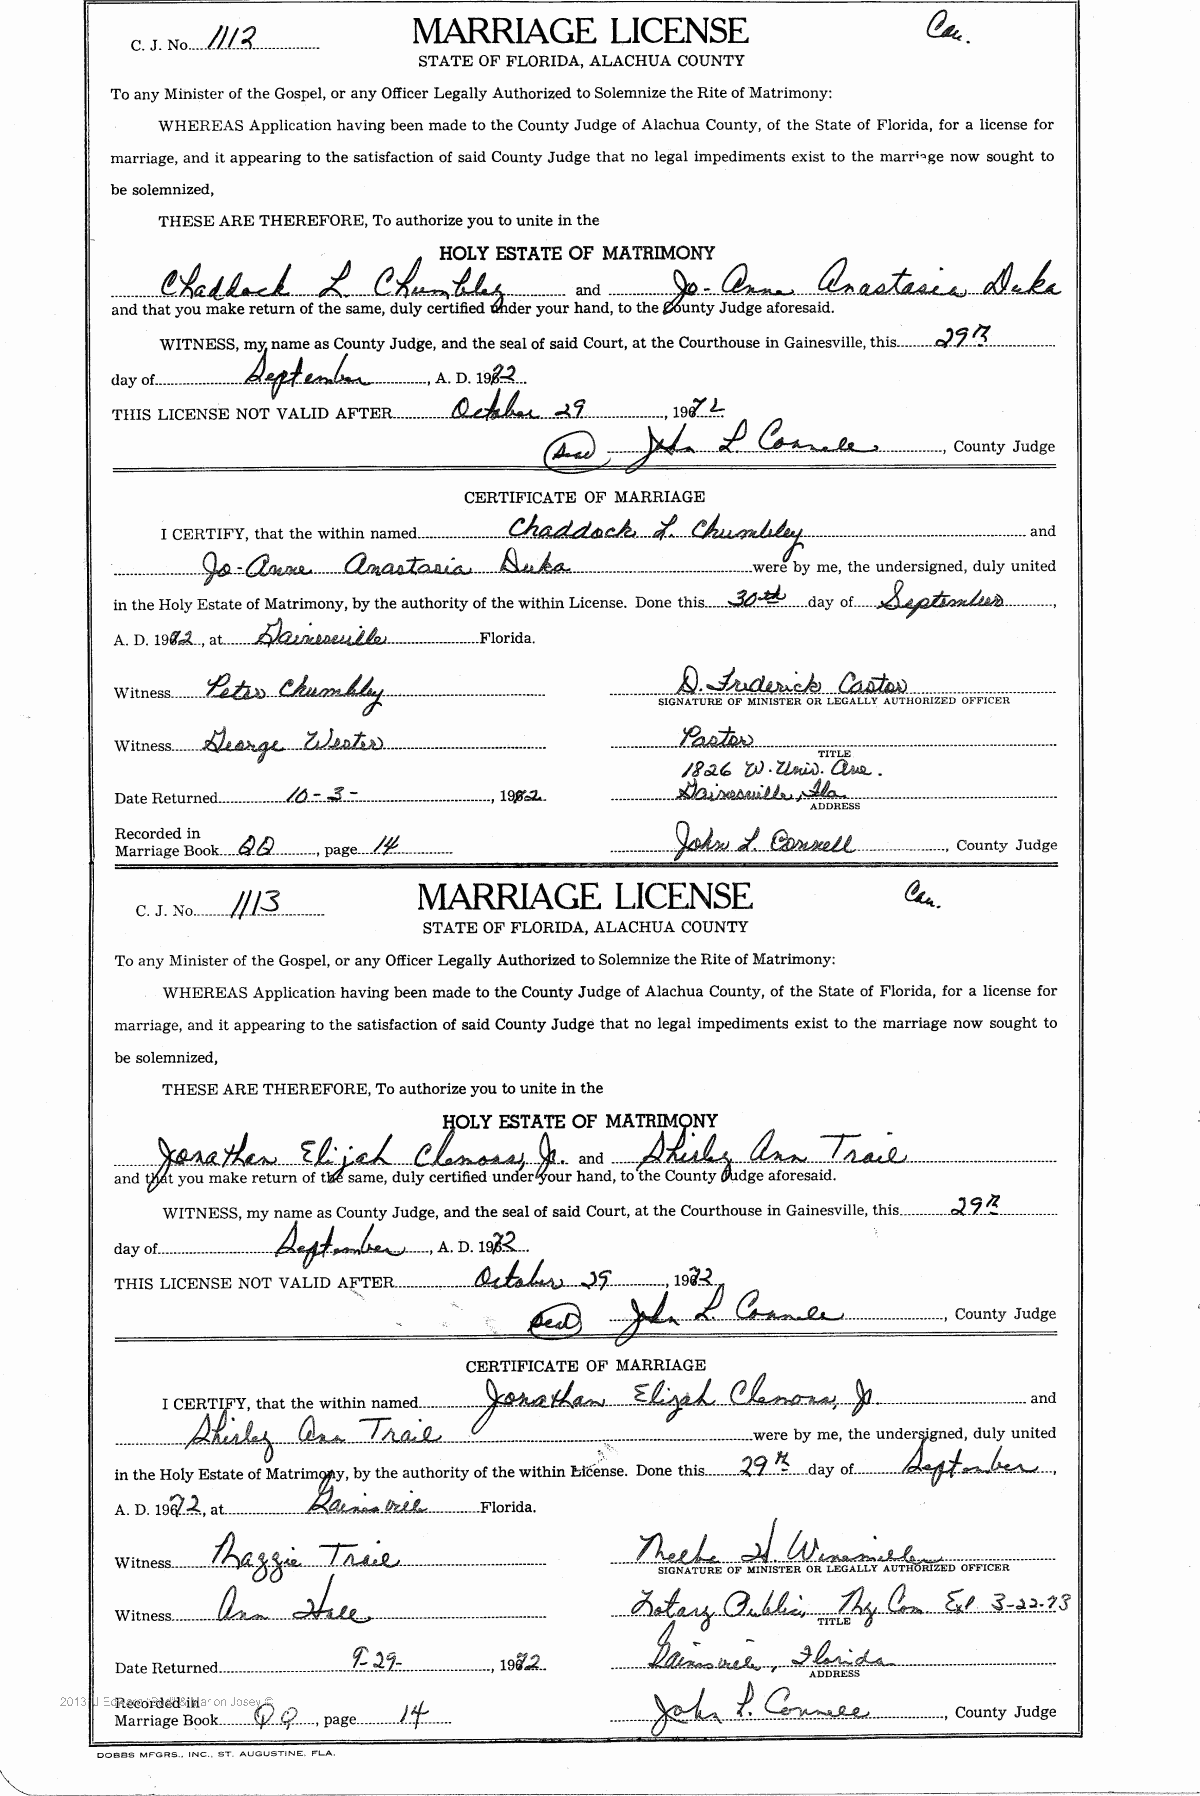 C. J. No. 1112 MARRIAGE LICENSE Cau.
STATE OF FLORIDA, ALACHUA COUNTY
To any Minister of the Gospel, or any Officer Legally Authorized to Solemnize the Rite of Matrimony:
WHEREAS Application having been made to the County Judge of Alachua County, of the State of Florida, for a license for
marriage, and it appearing to the satisfaction of said County Judge that no legal impediments exist to the marriage now sought to
be solemnized,
THESE ARE THEREFORE, To authorize you to unite in the
HOLY ESTATE OF MATRIMONY
Chaddock L. Chumbley and Jo-Anne Anastasia Duka
and that you make return of the same, duly certified under your hand, to the County Judge aforesaid.
WITNESS, my name as County Judge, and the seal of said Court, at the Courthouse in Gainesville, this 29th
day of September, A. D. 1972
THIS LICENSE NOT VALID AFTER October 29, 1972
(Seal) John L. Connell, County Judge
CERTIFICATE OF MARRIAGE
I CERTIFY, that the within named Chaddock L. Chumbley and
Jo-Anne Anastasia Duka were by me, the undersigned, duly united
in the Holy Estate of Matrimony, by the authority of the within License. Done this 30th day of September,
A. D. 1972, at Gainesville Florida.
Witness Peter Chumbley D. Frederick Castor
SIGNATURE OF MINISTER OR LEGALLY AUTHORIZED OFFICER
Witness George Wester Pastor
TITLE
1826 W. Univ. Ave.
Date Returned 10-3-, 1972 Gainesville, Fla
ADDRESS
Recorded in
Marriage Book QQ, page 14 John L. Connell, County Judge
C. J. No. 1113 MARRIAGE LICENSE Cau.
STATE OF FLORIDA, ALACHUA COUNTY
To any Minister of the Gospel, or any Officer Legally Authorized to Solemnize the Rite of Matrimony:
WHEREAS Application having been made to the County Judge of Alachua County, of the State of Florida, for a license for
marriage, and it appearing to the satisfaction of said County Judge that no legal impediments exist to the marriage now sought to
be solemnized,
THESE ARE THEREFORE, To authorize you to unite in the
HOLY ESTATE OF MATRIMONY
Jonathan Elijah Clemons, Jr. and Shirley Ann Trail
and that you make return of the same, duly certified under your hand, to the County Judge aforesaid.
WITNESS, my name as County Judge, and the seal of said Court, at the Courthouse in Gainesville, this 29th
day of September, A. D. 1972
THIS LICENSE NOT VALID AFTER October 29, 1972
(Seal) John L. Connell, County Judge
CERTIFICATE OF MARRIAGE
I CERTIFY, that the within named Jonathan Elijah Clemons, Jr. and
Shirley Ann Trail were by me, the undersigned, duly united
in the Holy Estate of Matrimony, by the authority of the within License. Done this 29th day of September,
A. D. 1972, at Gainesville Florida.
Witness Maggie Trail H. Winesmiller
SIGNATURE OF MINISTER OR LEGALLY AUTHORIZED OFFICER
Witness Ann Hall Notary Public, My Com. Exp. 3-22-73
TITLE
Date Returned 9-29-, 1972 Gainesville, Florida
ADDRESS
Recorded in
Marriage Book QQ, page 14 John L. Connell, County Judge
DOBBS MFGRS., INC., ST. AUGUSTINE, FLA.